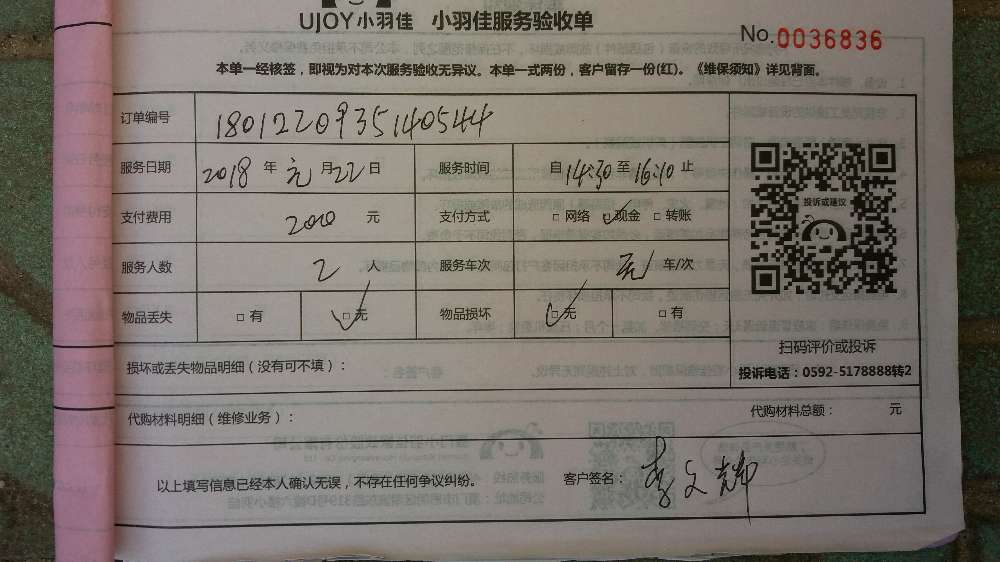 UJOY小羽佳 小羽佳服务验收单
No.0036836
本单一经核签，即视为对本次服务验收无异议。本单一式两份，客户留存一份(红)。《维保须知》详见背面。
订单编号 180122093514054​4
服务日期 2018 年 元 月 22 日 服务时间 自 14:30 至 16:10 止
支付费用 2000 元 支付方式 □ 网络 □ 现金 □ 转账
服务人数 2 人 服务车次 元 车/次
物品丢失 □ 有 □ 无 物品损坏 □ 无 □ 有
投诉或建议
扫码评价或投诉
投诉电话：0592-5178888转2
损坏或丢失物品明细（没有可不填）：
代购材料明细（维修业务）： 代购材料总额： 元
以上填写信息已经本人确认无误，不存在任何争议纠纷。 客户签名： 李文辉